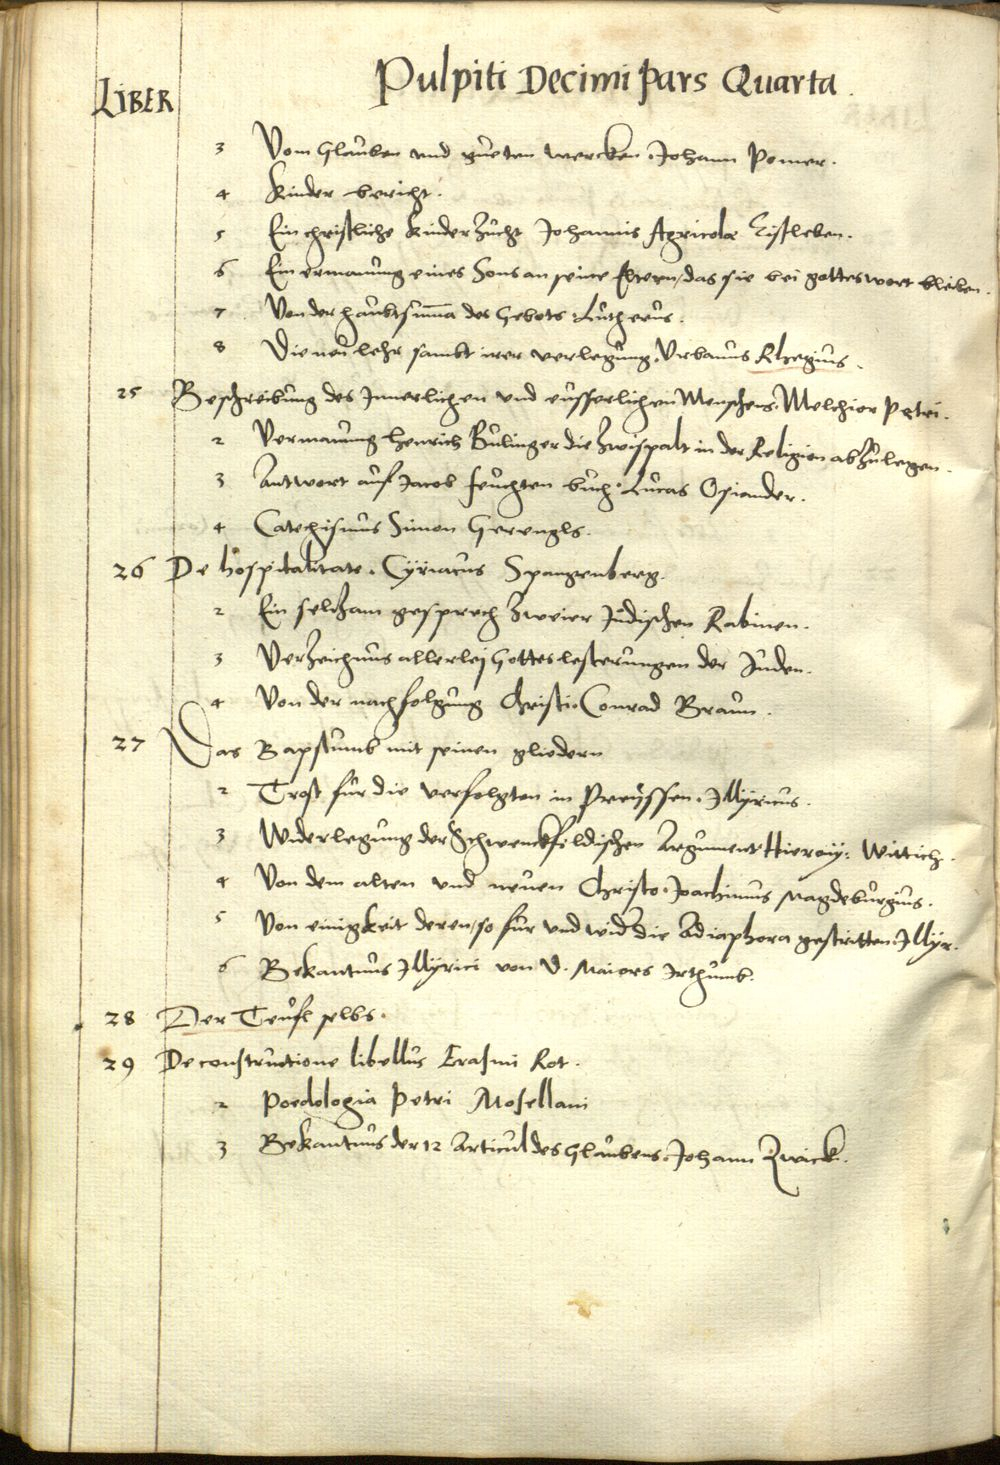 Pulpiti Decimi Pars Quarta.
LIBER
3 Vom Glauben und gueten wercken. Johann Pomer.
4 Kinder bericht.
5 Ein christliche Kinder Zucht Johannis Agricolæ Eisleben.
6 Ein ermanung eines Sons an seine Eltern, das sie bei gottes wort bleiben.
7 Von der haubtsumma des Gebots. Lutherus.
8 Die neu lehr sambt irer verlegung. Vrbanus Rhegius.
25 Beschreibung des Innerlichen und eusserlichen Menschens. Melchior Petri.
2 Vermanung Henrich Bulinger die Zwispalt in der Religion abzulegen.
3 Antwort auf Jacob feuchten buch. Lucas Osiander.
4 Catechismus Simon Gerengls.
26 De hospitalitate. Cyriacus Spangenberg.
2 Ein seltzam gesprech Zweier Judischen Rabinen.
3 Verzeichnus allerlej Gottes lesterungen der Juden.
4 Von der nachfolgung Christi. Conrad Braun.
27 Das Bapstumb mit seinen gliedern
2 Trost für die verfolgten in Preyssen. Illyricus.
3 Widerlegung der Schwenckfeldischen Argument Hierony: Wittich.
4 Von dem alten und neuen Christo. Joachimus Magdeburgius.
5 Von einigkeit deren, so für und wid die Adiaphora gestritten. Illyr.
6 Bekantnus Illyrici von D. Maiors Irthumb.
28 Der Teufl selbs.
29 De constructione libellus Erasmi Rot.
2 Poedologia Petri Mosellani
3 Bekantnus der 12 Articul des Glaubens. Johann Zwick.